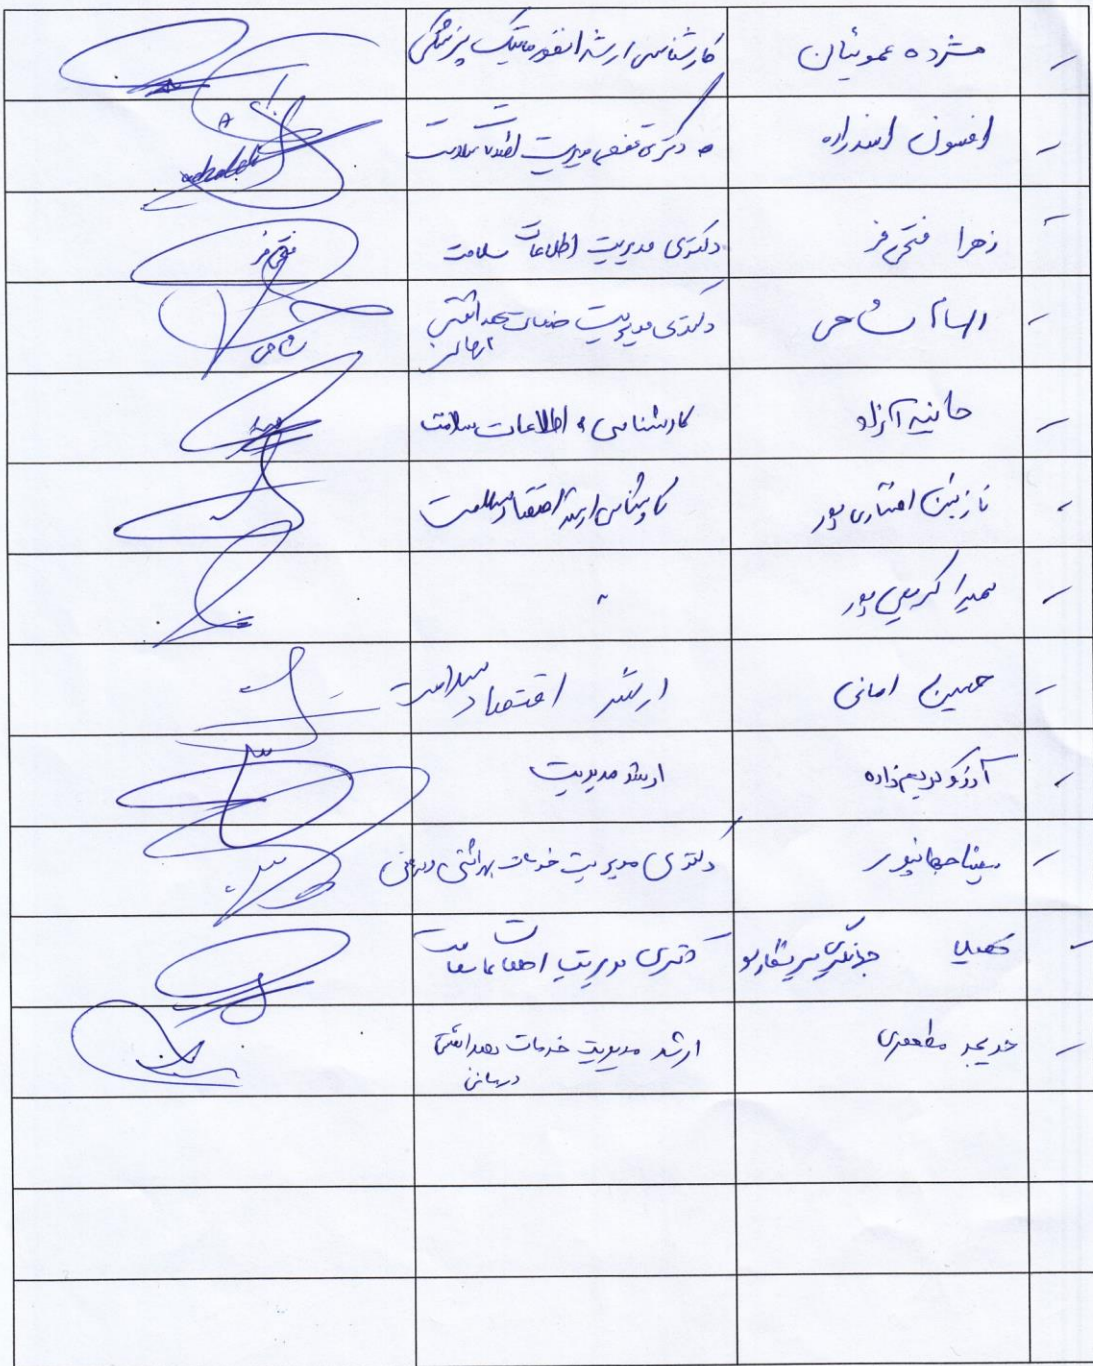 مژده عموئیان کارشناسی ارشد انفورماتیک پزشکی
افسون اسدزاده دکتری تخصصی مدیریت اطلاعات سلامت
زهرا فتحی فر دکتری مدیریت اطلاعات سلامت
فتحی فر
الهام شاحی دکتری مدیریت خدمات بهداشتی
درمانی
شاحی
حانیه آنرلو کارشناسی اطلاعات سلامت
نازنین افشاری پور کارشناسی ارشد اقتصاد سلامت
سمیرا کریمی پور "
حسین امانی ارشد اقتصاد سلامت
آرزو کریم زاده ارشد مدیریت
سینا جهانپور دکتری مدیریت خدمات بهداشتی درمانی
جهانگیری دکتری مدیریت اطلاعات سلامت
خدیجه مظفری ارشد مدیریت خدمات بهداشتی
درمانی